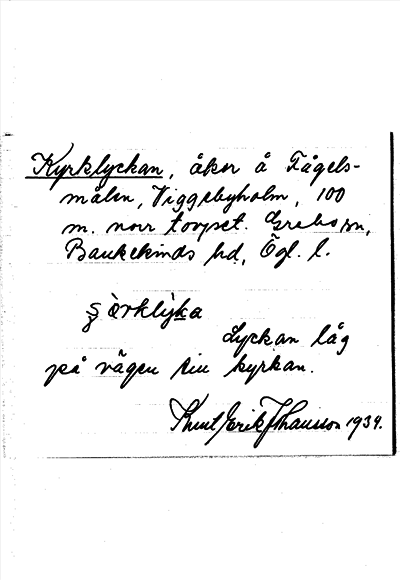 Kyrklyckan, åker å Fågels-
målen, Viggebyholm, 100
m. norr torpet. Grebo sn,
Bankekinds hd, Ögl. l.
Lyckan låg
på vägen till kyrkan.
Knut Erik Johansson 1934.